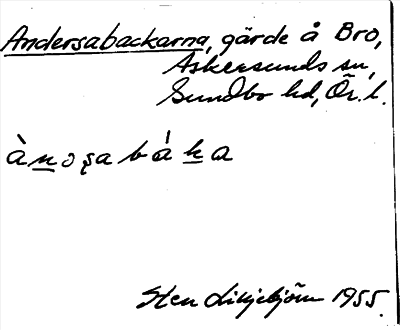 Andersabackarna, gärde å Bro,
Askersunds sn,
Sundbo hd, Ör. l.
ànoşabáka
Sten Liljebjörn 1955.